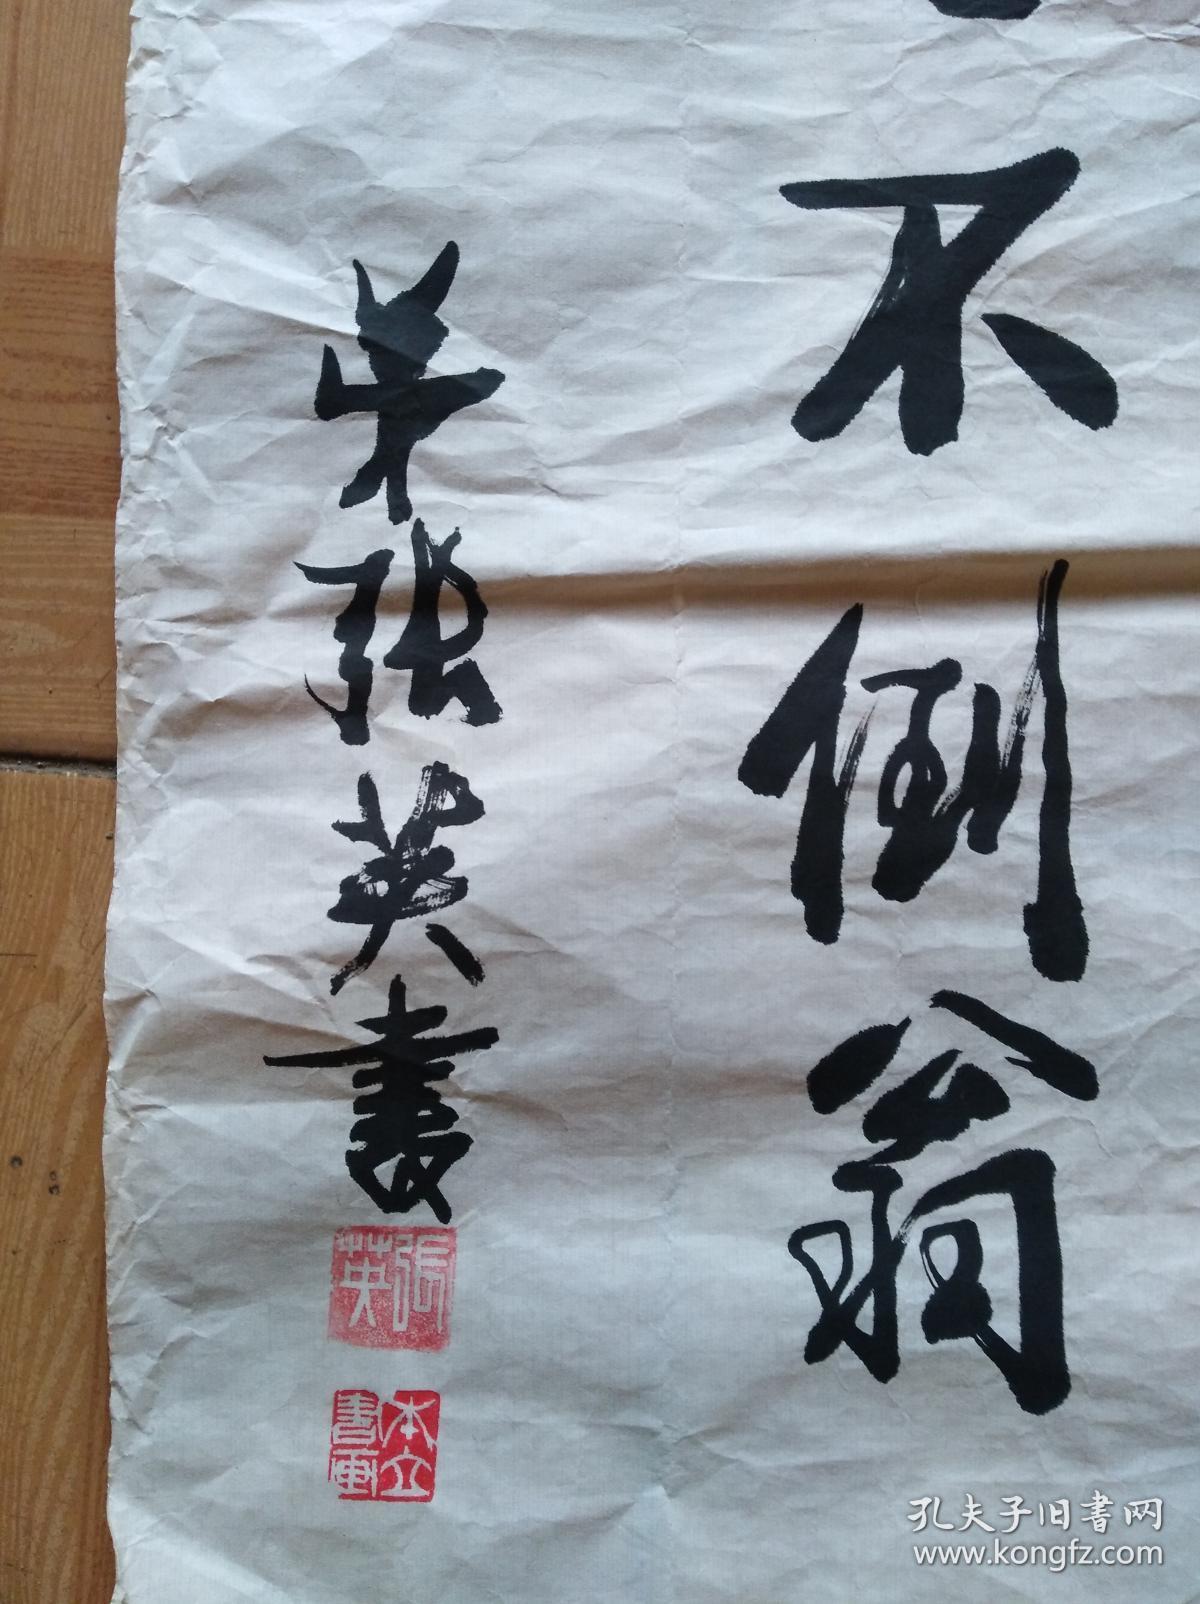 不倒翁
弟張英書
張英
本立
書画
孔夫子旧书网
www.kongfz.com